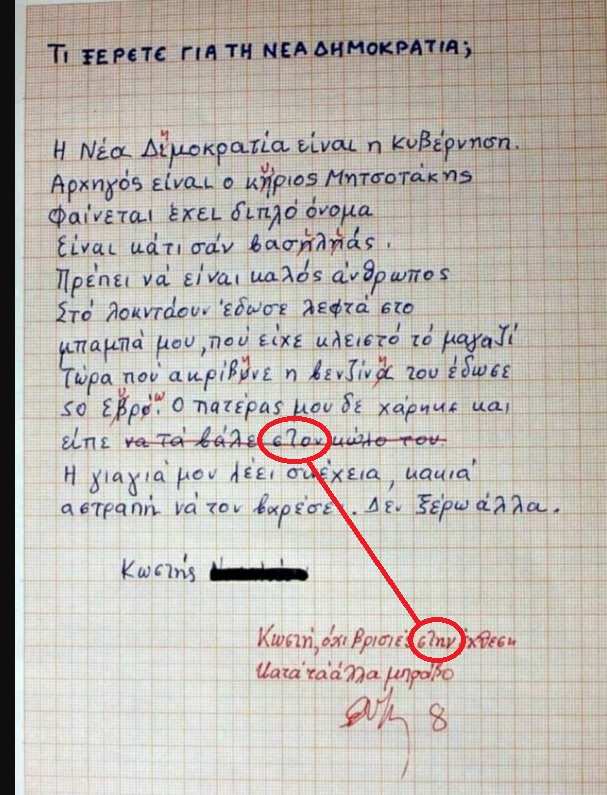 ΤΙ ΞΕΡΕΤΕ ΓΙΑ ΤΗ ΝΕΑ ΔΗΜΟΚΡΑΤΙΑ;
Η Νέα Δημοκρατία είναι η κυβέρνηση.
Αρχηγός είναι ο κήριος Μητσοτάκης
Φαίνεται έχει διπλό όνομα
Είναι κάτι σάν βασηληάς.
Πρέπει νά είναι καλός άνθρωπος
Στό λοκντάουν έδωσε λεφτά στο
μπαμπά μου, πού είχε κλειστό τό μαγαζί
Τώρα πού ακρίβυνε η βενζίνα του έδωσε
50 εβρό. Ο πατέρας μου δε χάρηκε και
είπε να τά βάλει στον κώλο του.
Η γιαγιά μου λέει συέχεια, κακιά
αστραπή νά τον βαρέσει. Δεν ξέρω άλλα.
Κωστής
Κωστή, όχι βρισιές στην έχθεση
Κατά τα άλλα μπράβο
8